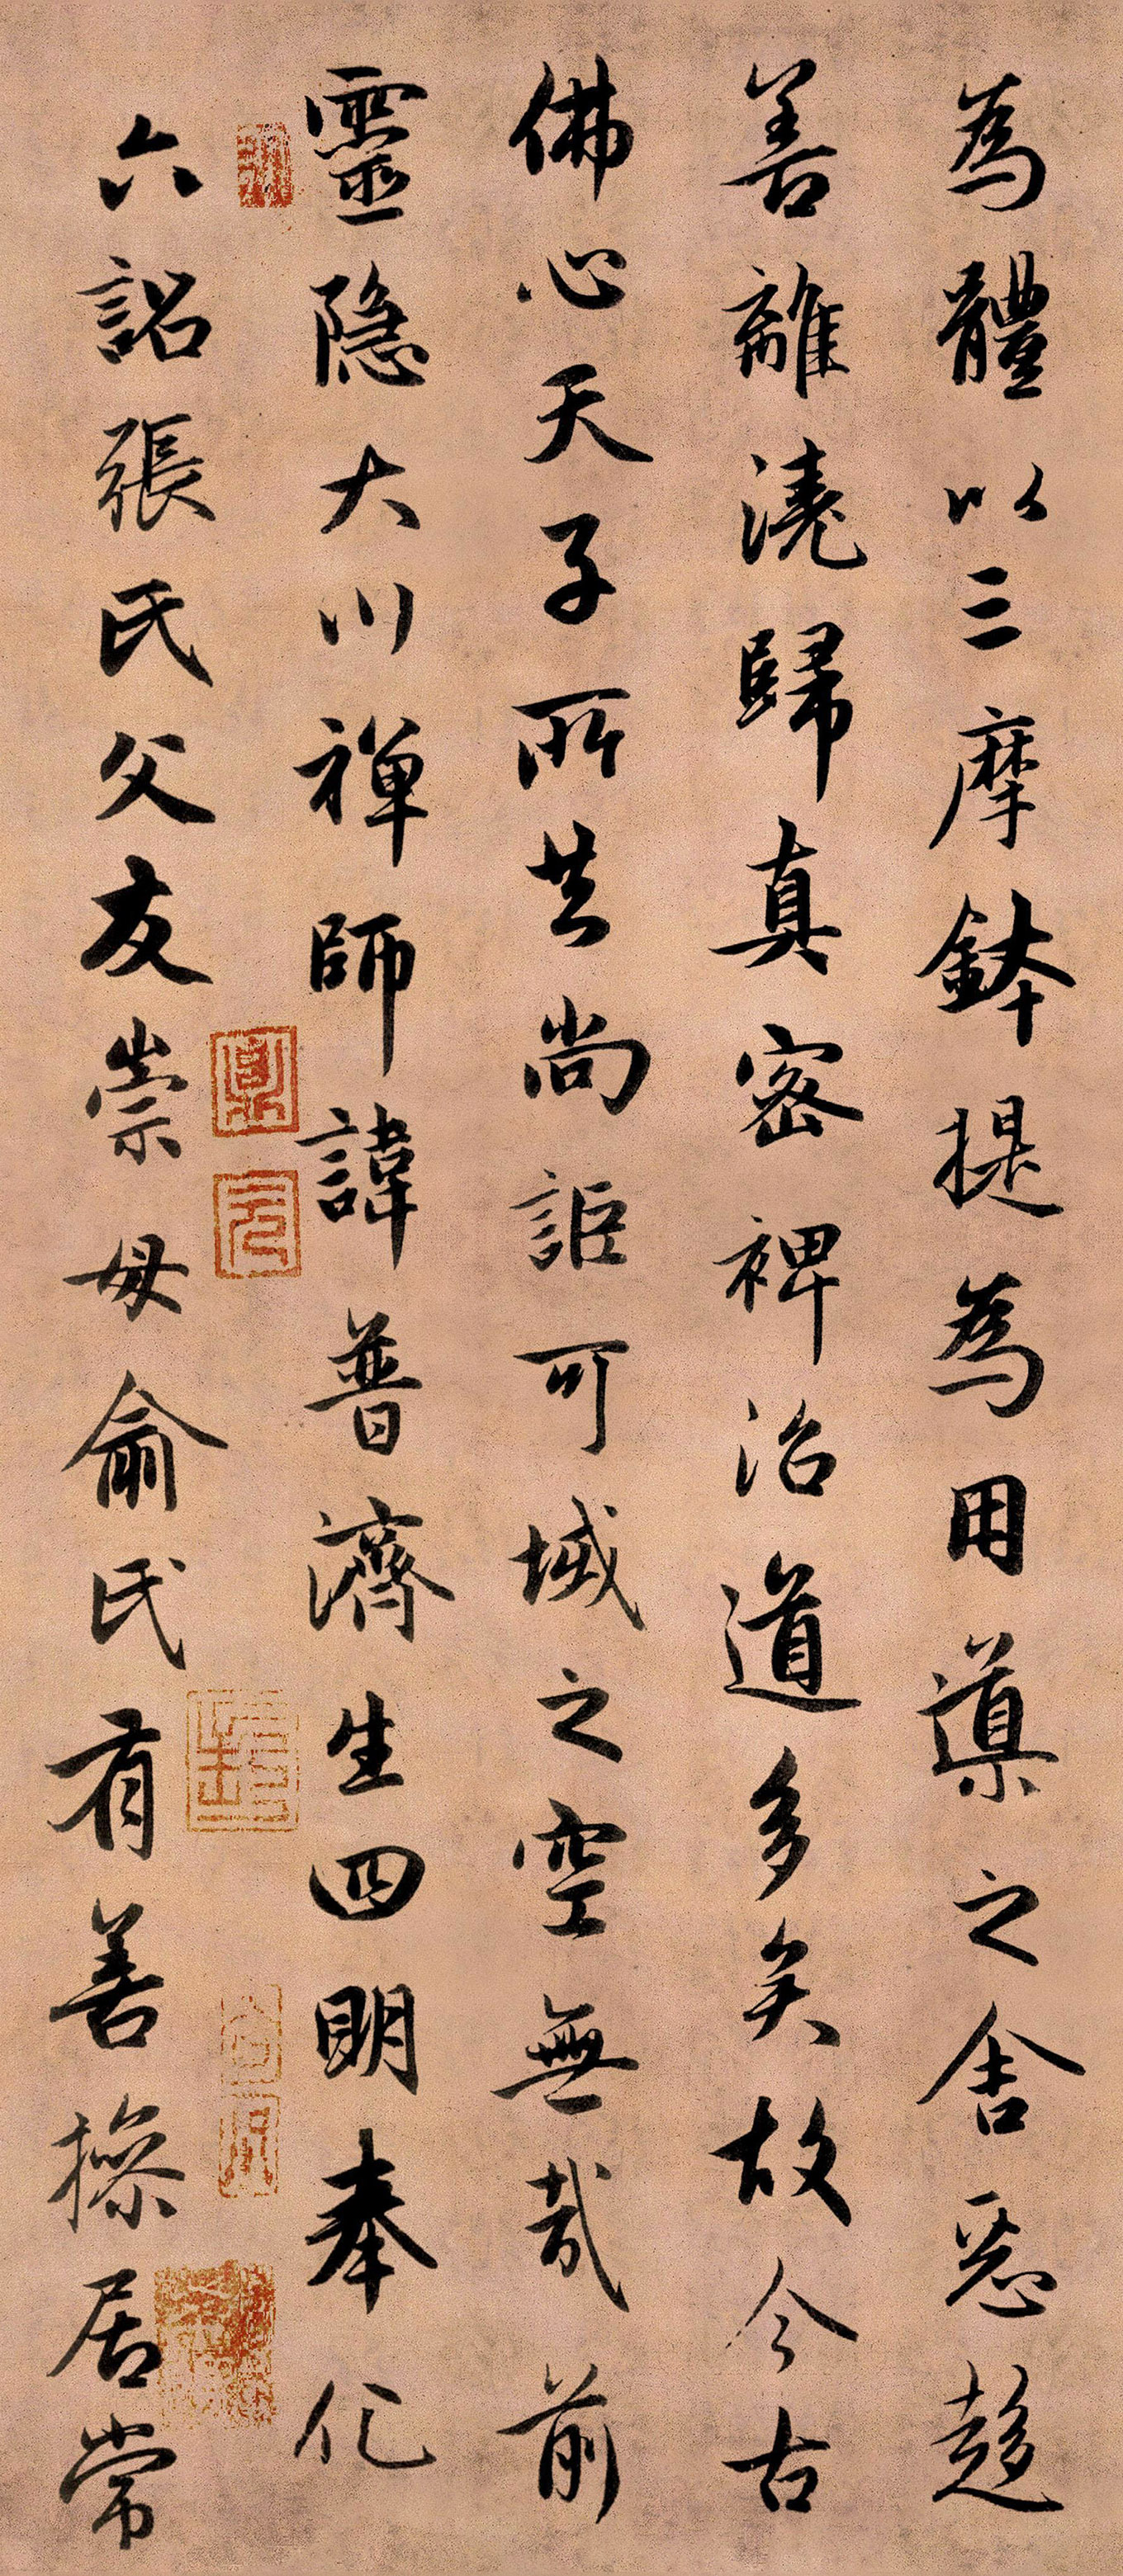 為體以三摩鉢提為用導之舍惡趍
善離澆歸真密裨治道多矣故今古
佛心天子所共尚詎可域之空無哉前
靈隐大川禅師諱普濟生四明奉化
六詔張氏父友崇母俞氏有善操居常